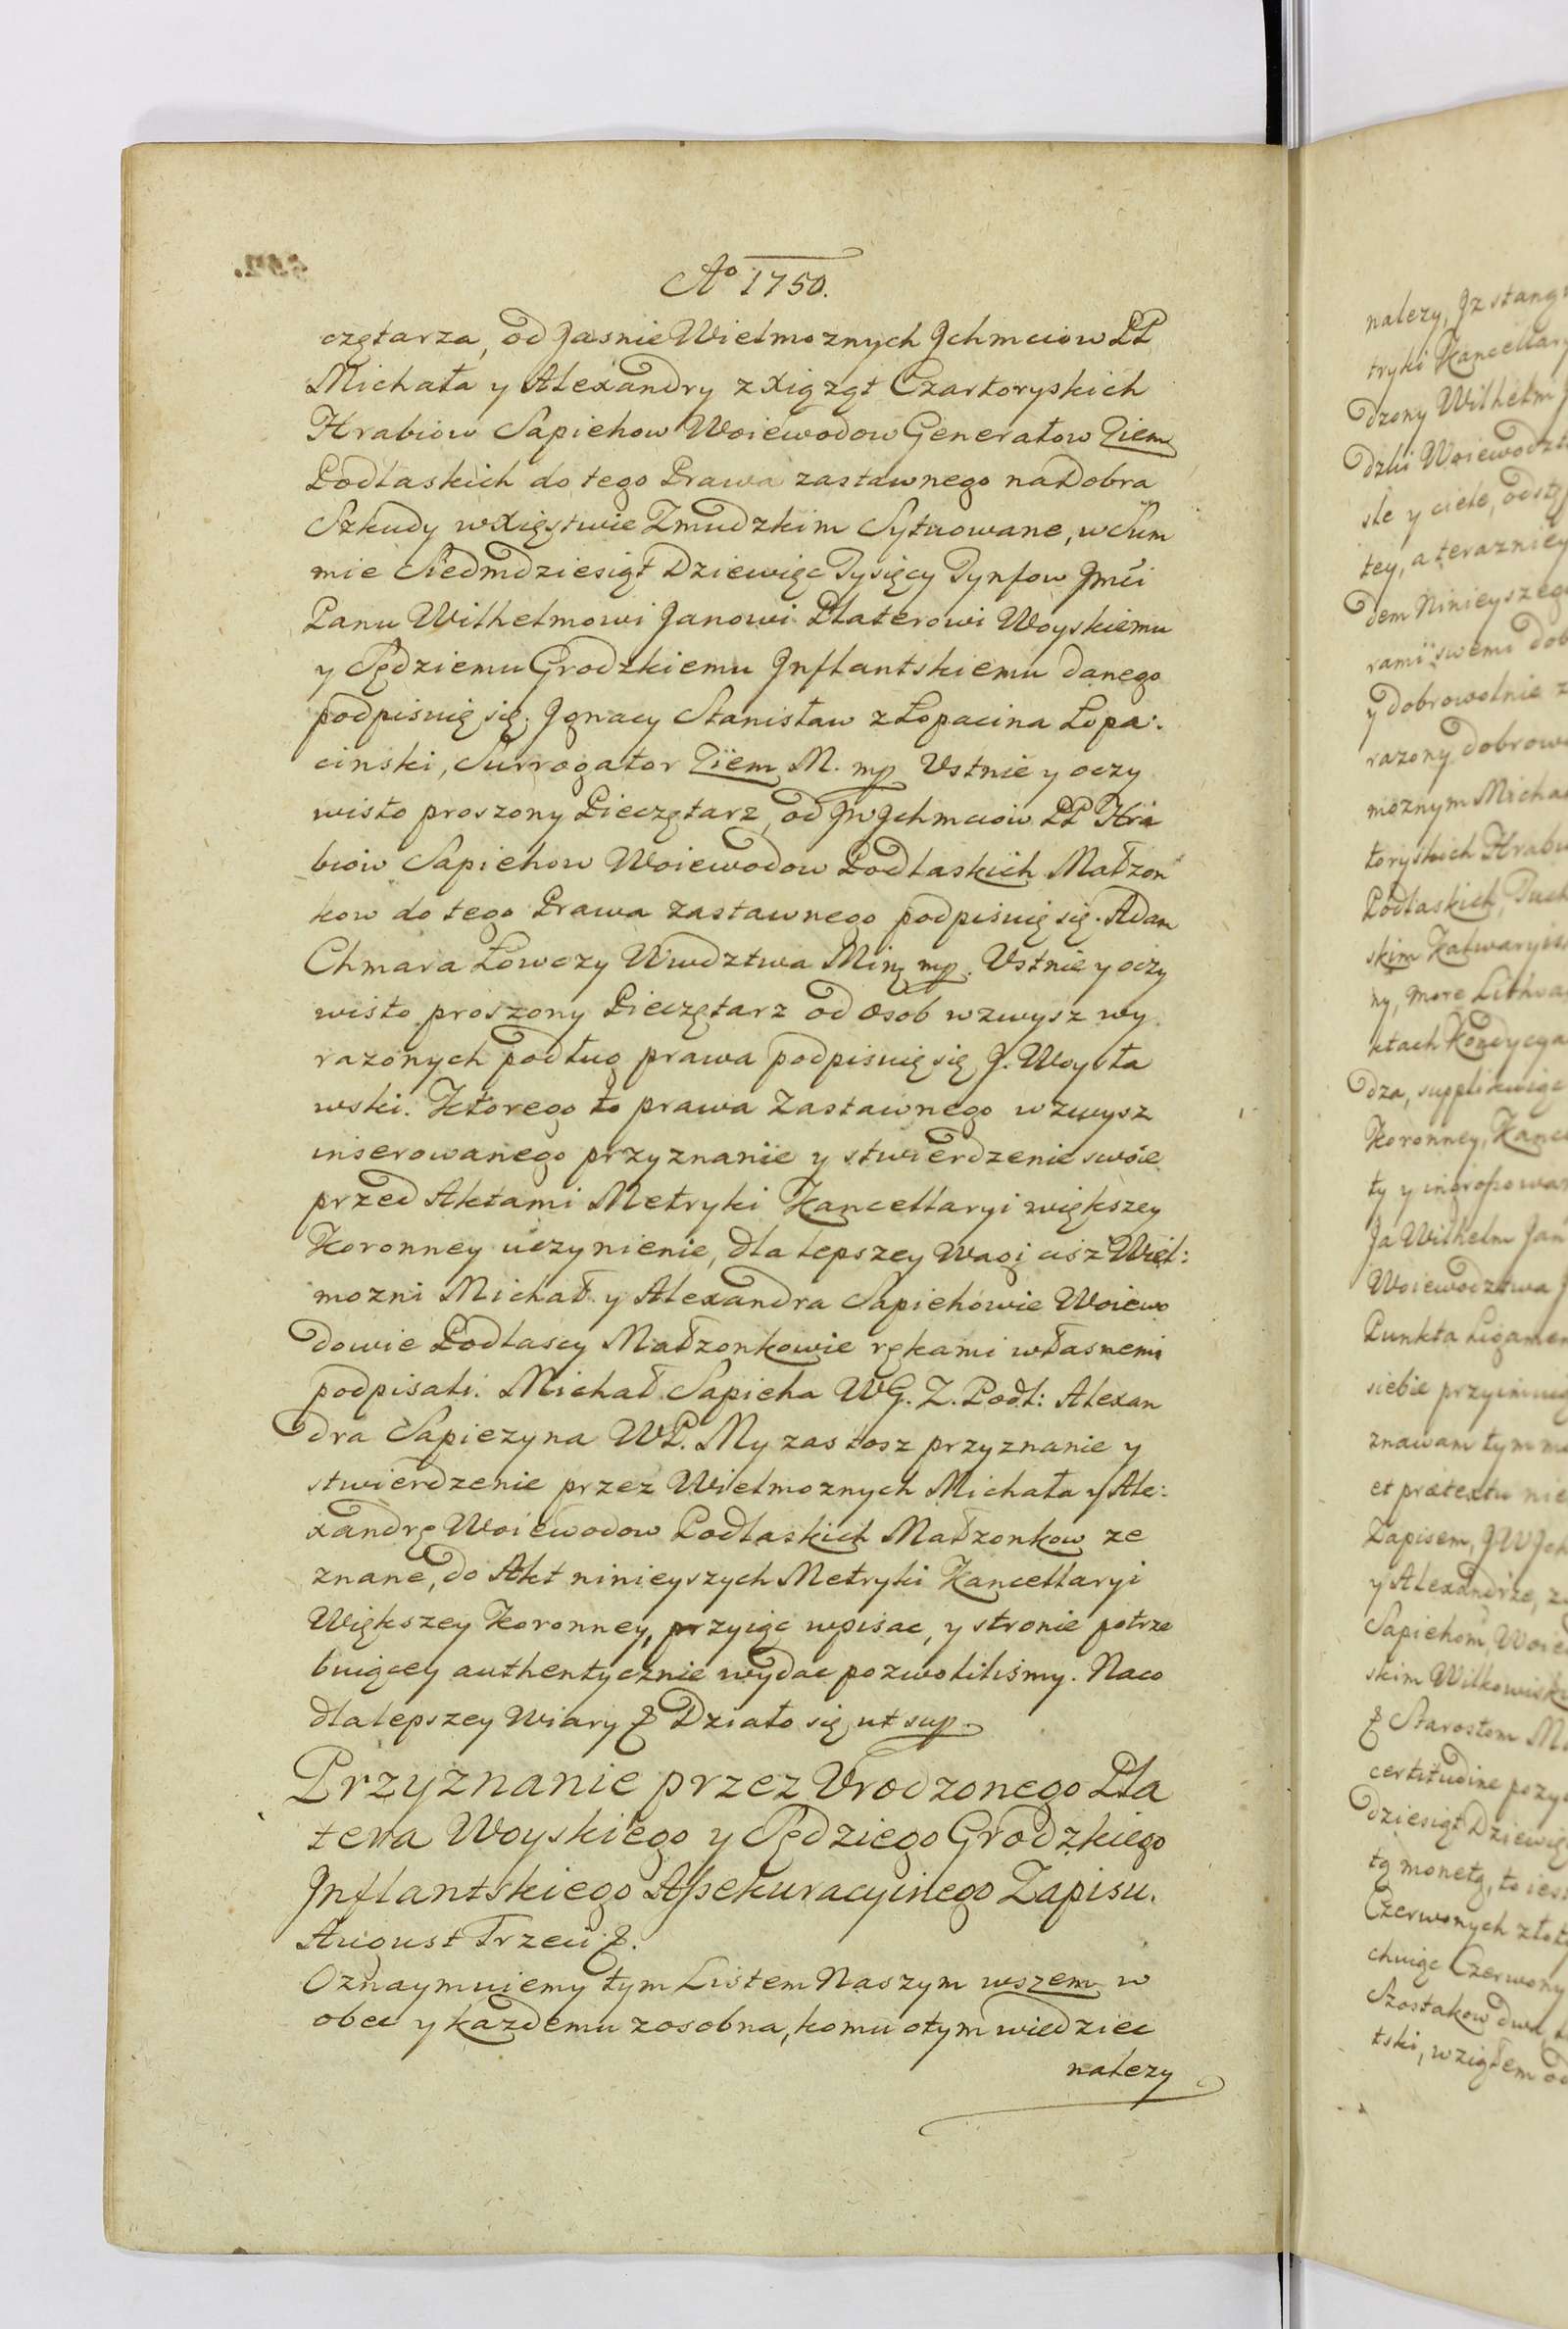 Ao 1750.
czętarza, od Jasnie Wielmoznych Jchmciow PP
Michała y Alexandry z Xiąząt Czartoryskich
Hrabiow Sapiehow Woiewodow Generałow Ziem
Podlaskich do tego Prawa zastawnego na Dobra
Szkudy w Xięstwie Zmudzkim Sytuowane, w Sum
mie Siedmdziesiąt Dziewięc Tysięcy Tynfow Jmći
Panu Wilhelmowi Janowi Platerowi Woyskiemu
y Sędziemu Grodzkiemu Jnflantskiemu danego
podpisuię się. Jgnacy Stanisław z Łopacina Łopa:
cinski, Surrogator Ziem M. mp Vstnie y oczy
wisto proszony Pieczętarz, od JW Jchmciow PP Hra
biow Sapiehow Woiewodow Podlaskich Małzon
kow do tego Prawa zastawnego podpisuię się. Adam
Chmara Łowczy Wwdztwa Min mp. Vstnie y oczy
wisto proszony Pieczętarz od osob wzwysz wy
razonych podług prawa podpisuię się J. Woysła
wski. Ktorego to prawa Zastawnego wzwysz
inserowanego przyznanie y stwierdzenie swoie
przed Aktami Metryki Kancellaryi większey
Koronney uczynienie, dla lepszey Wagi ciż Wiel:
mozni Michał y Alexandra Sapiehowie Woiewo
dowie Podlascy Małzonkowie rękami własnemi
podpisali. Michał Sapieha WG. Z. Podl: Alexan
dra Sapiezyna WP. My zas tosz przyznanie y
stwierdzenie przez Wielmoznych Michała y Ale:
xandrę Woiewodow Podlaskich Małzonkow ze
znane, do Akt ninieyszych Metryki Kancellaryi
Większey Koronney, przyiąc wpisac, y stronie potrze
buiącey authentycznie wydac pozwolilismy. Naco
dla lepszey Wiary & Działo się ut sup.
Przyznanie przez Vrodzonego Pla
tera Woyskiego y Sędziego Grodzkiego
Jnflantskiego Assekuracyinego Zapisu.
August Trzeci &.
Oznaymuiemy tym Listem Naszym wszem w
obec y kazdemu zosobna, komu o tym wiedziec
nalezy
nalezy, Jz stanąw
tryki Kancellary
dzony Wilhelm J
dzki Woiewodzt
śle y ciele, odstę
tey, a terazniey
dem Ninieyszeg
rami swemi dob
y dobrowolnie z
razony dobrow
moznym Micha
toryskich Hrabi
Podlaskich, Puck
skim Kalwaryis
ny, more Lithua
ktach Kondycya
dza, supplikuiąc
Koronney, Kance
ty y ingrossowan
Ja Wilhelm Jan
Woiewodztwa J
Punkta Ligamen
siebie przyimuię
znawam tym m
et prætextu nie
Zapisem, JW Jch
y Alexandrze, z
Sapiehom, Woie
skim Wilkowisk
& Starostom M
certitudine pozy
dziesiąt Dziewię
tą monetą, to ies
Czerwonych złot
chuiąc Czerwony
Szostakow dwa,
tski, wziąłem od